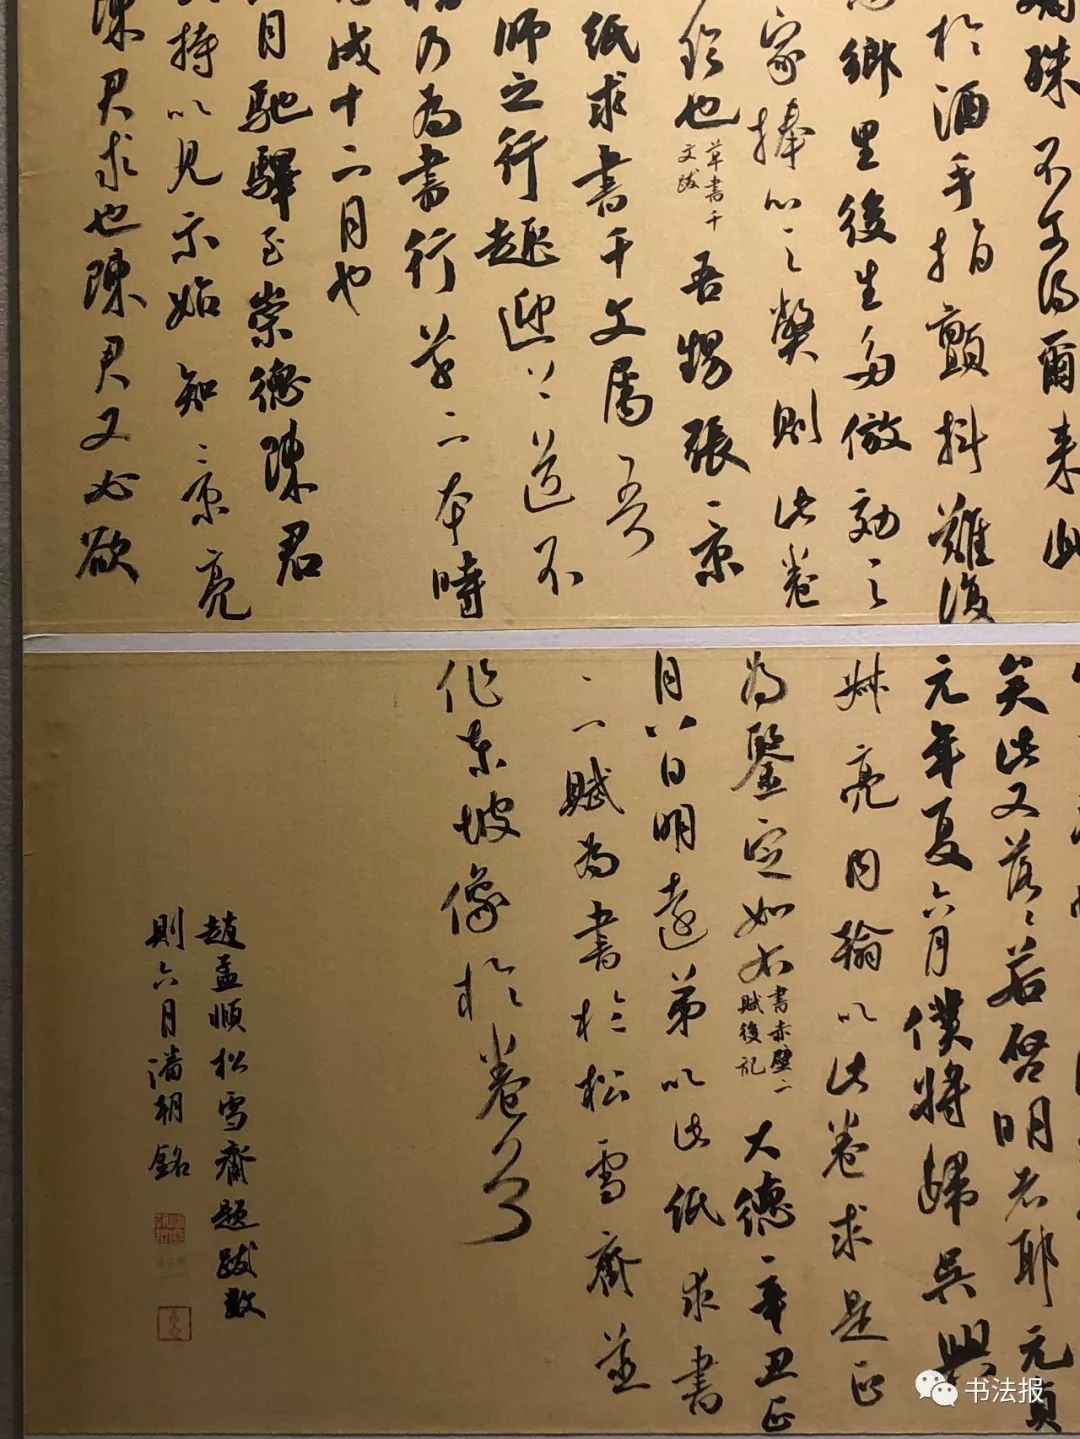 殊不得爾来此
於酒手指顫抖難復
鄉里後生多倣効之
家捧心之獘則此卷
珍也草書千文跋吾甥張景
紙求書千文属吾
師之行趣迎送不
乃為書行草二本時
戌十二月也
月馳驛至崇德陳君
持以見示始知景亮
陳君求也陳君又必欲
矣此又落落若啓明者耶元貞
元年夏六月僕將歸吳興
叔亮内翰以此卷求是正
為鑒定如右書赤壁二賦後記大德辛丑正
月八日明遠弟以此紙求書
二賦為書於松雪齋並
作東坡像於卷首
趙孟頫松雪齋題跋數
則六月潘朝銘
书法报